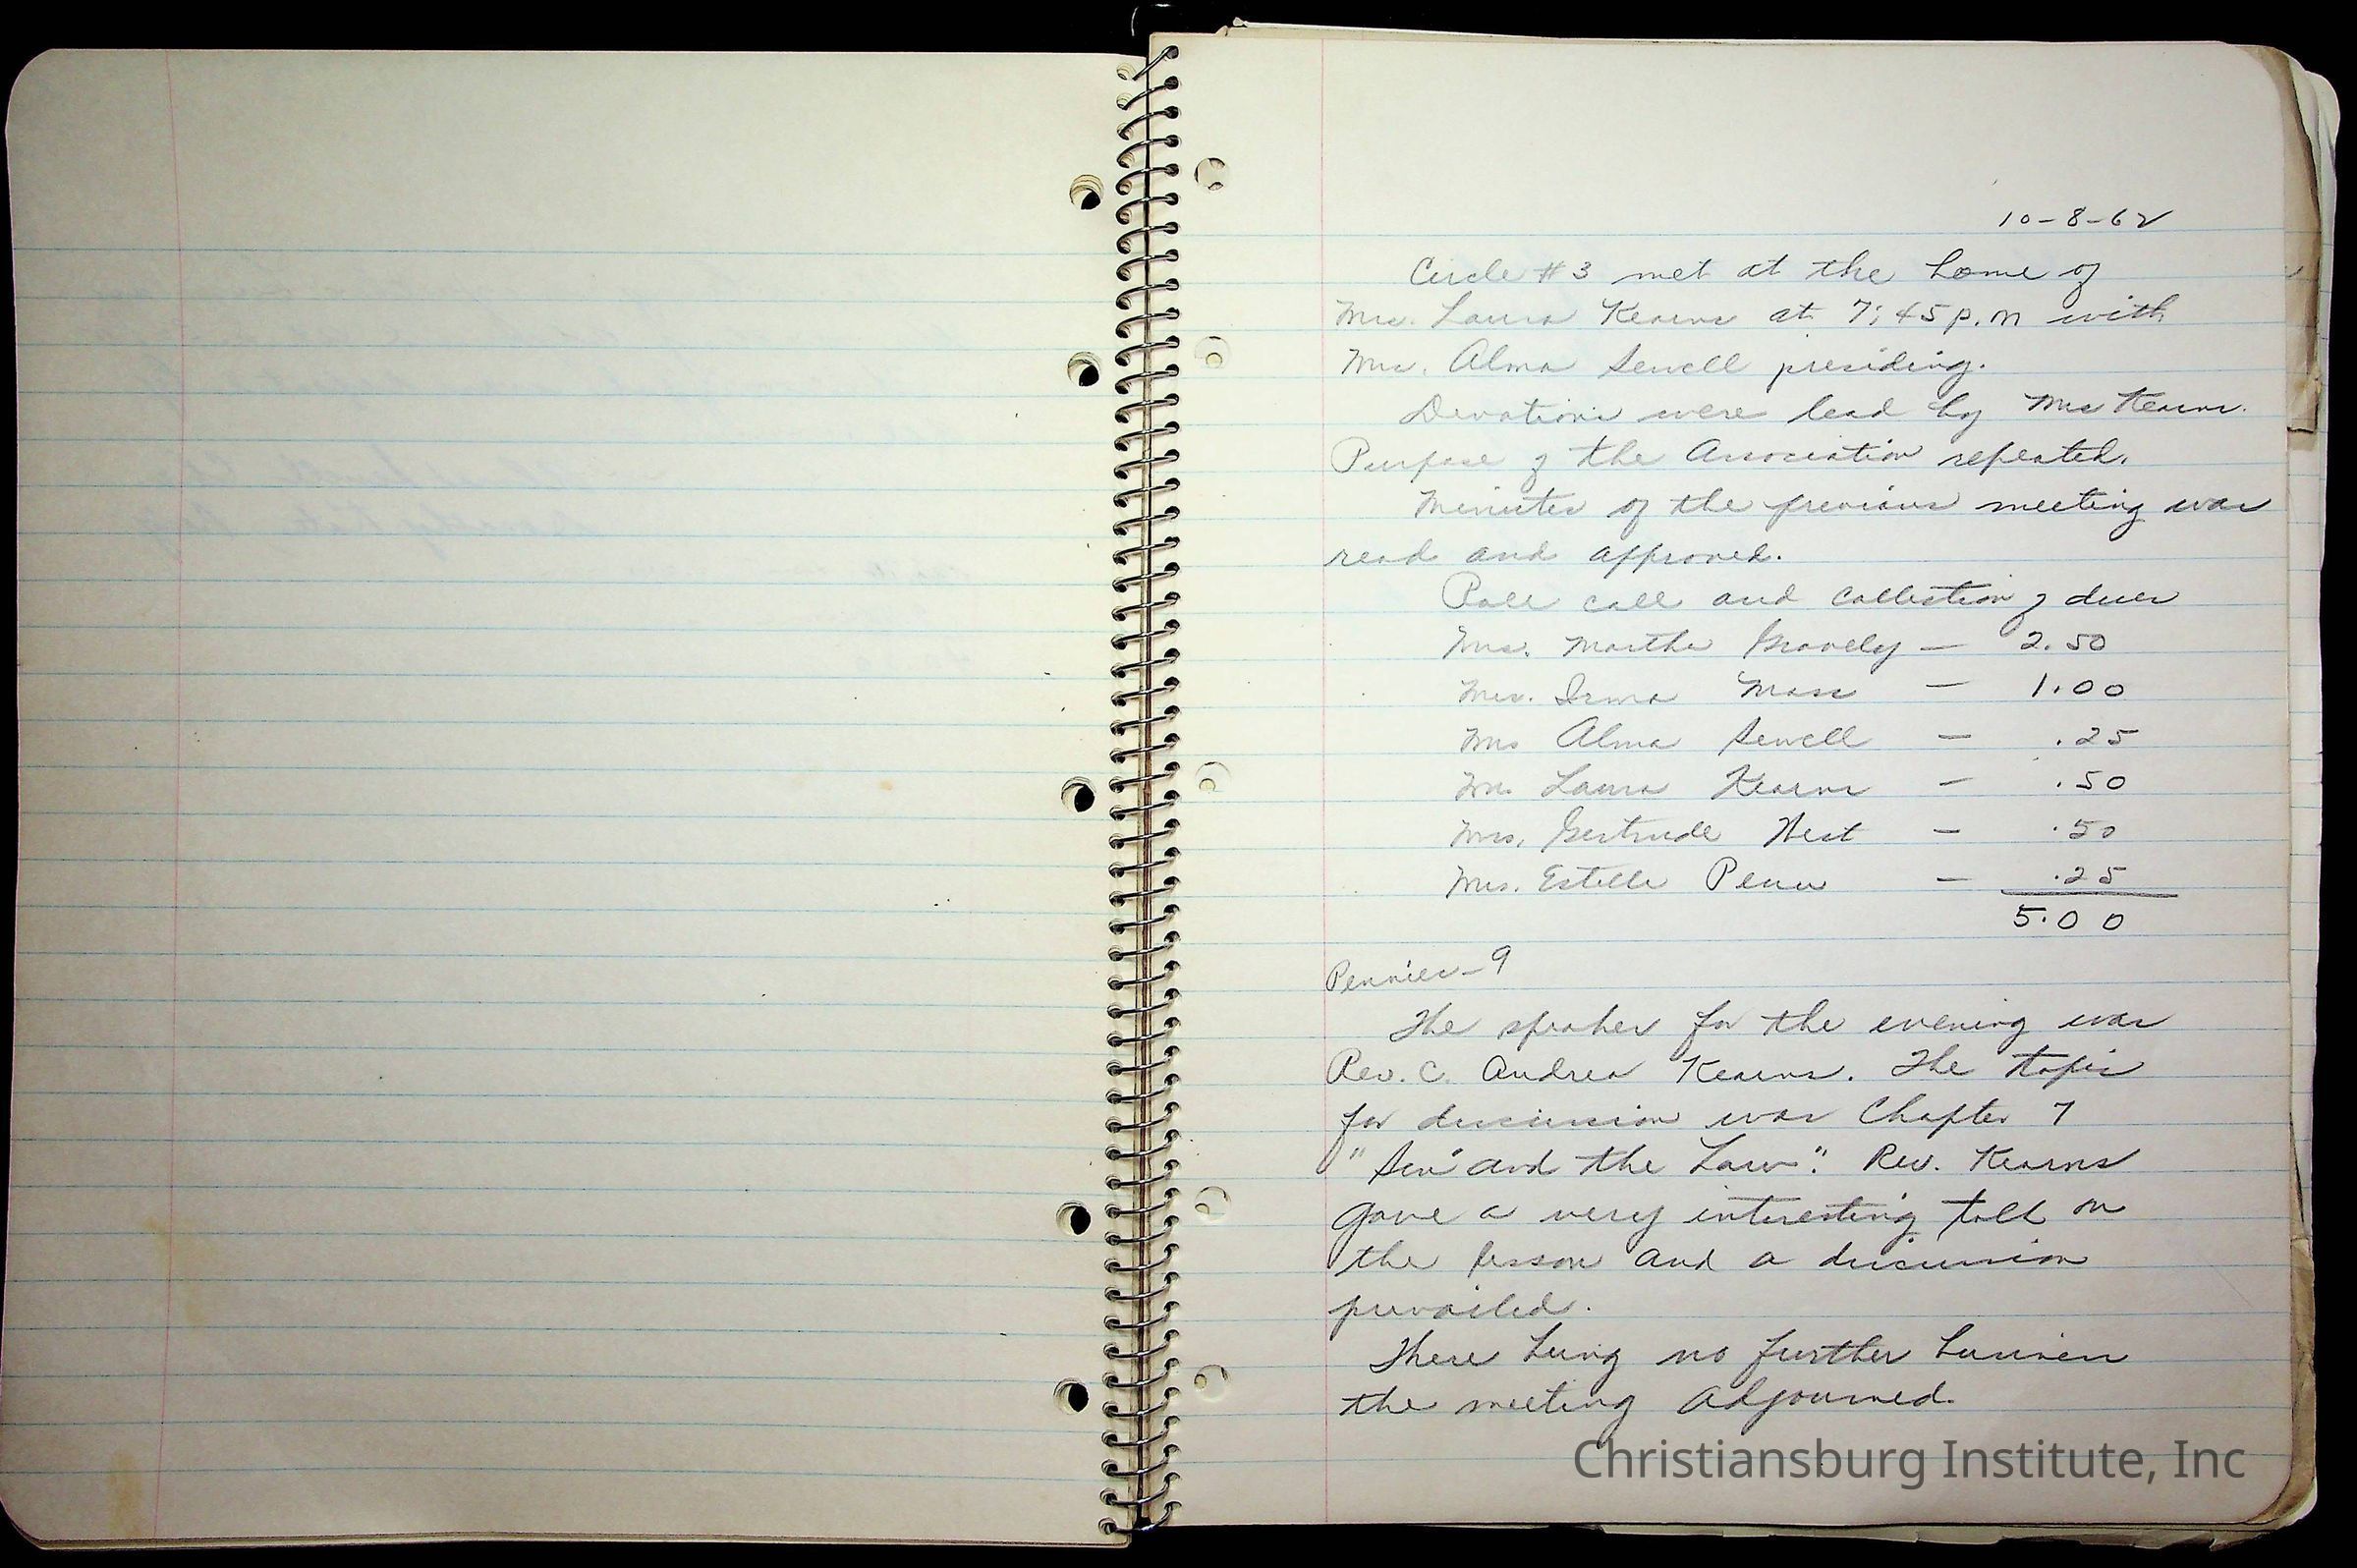 10-8-62
Circle #3 met at the home of
Mrs. Laura Kearns at 7:45 p.m with
Mrs. Alma Sewell presiding.
Devotions were lead by Mrs Kearns.
Purpose of the Association repeated.
Minutes of the previous meeting was
read and approved.
Roll call and collection of dues
Mrs. Martha Gravely — 2.50
Mrs. Irma Moss — 1.00
Mrs Alma Sewell — .25
Mrs. Laura Kearns — .50
Mrs. Gertrude West — .50
Mrs. Estelle Penn — .25
5.00
Pennies - 9
The speaker for the evening was
Rev. C. Andrew Kearns. The topic
for discussion was Chapter 7
"Sin" and the Law". Rev. Kearns
gave a very interesting talk on
the lesson and a discussion
prevailed.
There being no further business
the meeting adjourned.
Christiansburg Institute, Inc